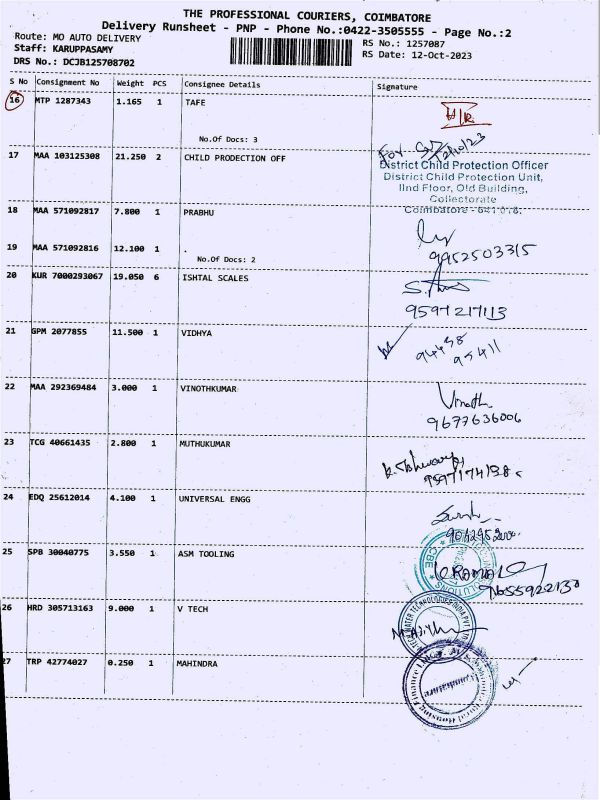 THE PROFESSIONAL COURIERS, COIMBATORE
Delivery Runsheet - PNP - Phone No.:0422-3505555 - Page No.:2
Route: MO AUTO DELIVERY
Staff: KARUPPASAMY
DRS No.: DCJB125708702
RS No.: 1257087
RS Date: 12-Oct-2023
S No Consignment No Weight PCS Consignee Details Signature
16 MTP 1287343 1.165 1 TAFE
No.Of Docs: 3
17 MAA 103125308 21.250 2 CHILD PRODECTION OFF
For
12/10/23
District Child Protection Officer
District Child Protection Unit,
IInd Floor, Old Building,
Collectorate
Coimbatore - 641 018.
18 MAA 571092817 7.800 1 PRABHU
19 MAA 571092816 12.100 1 .
No.Of Docs: 2
9952503315
20 KUR 7000293067 19.050 6 ISHTAL SCALES
9597217113
21 GPM 2077855 11.500 1 VIDHYA
94438
95411
22 MAA 292369484 3.000 1 VINOTHKUMAR
Vinoth
9677636006
23 TCG 40661435 2.800 1 MUTHUKUMAR
24 EDQ 25612014 4.100 1 UNIVERSAL ENGG
25 SPB 30040775 3.550 1 ASM TOOLING
9655922130
26 HRD 305713163 9.000 1 V TECH
27 TRP 42774027 0.250 1 MAHINDRA